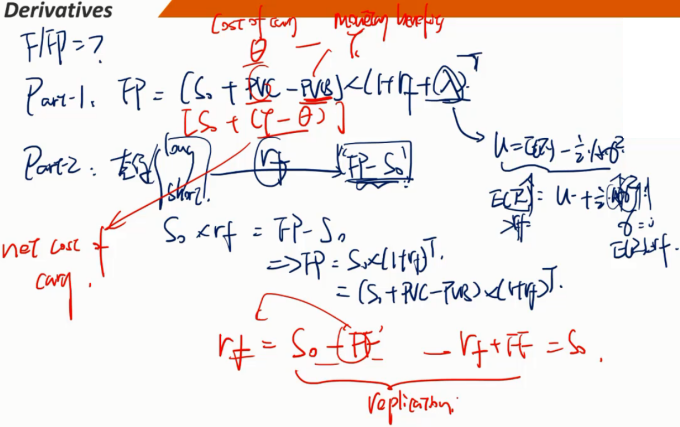 Derivatives
Cost of carry
Monetary benefits
F/FP = ?
θ — γ.
Part-1. FP = [S₀ + PVC - PVB] × (1+rf+λ)ᵀ
[S₀ + (γ - θ)]
U = E(R) - ½·Aσ²
Part-2: long short rf FP - S₀
E(R) = U + ½ Aσ²
> rf
S₀ × rf = FP - S₀
E(R) > rf.
net cost of carry.
=> FP = S₀ × (1+rf)ᵀ.
= (S₀ + PVC - PVB) × (1+rf)ᵀ.
rf = S₀ - FF — rf + FF = S₀.
replication.